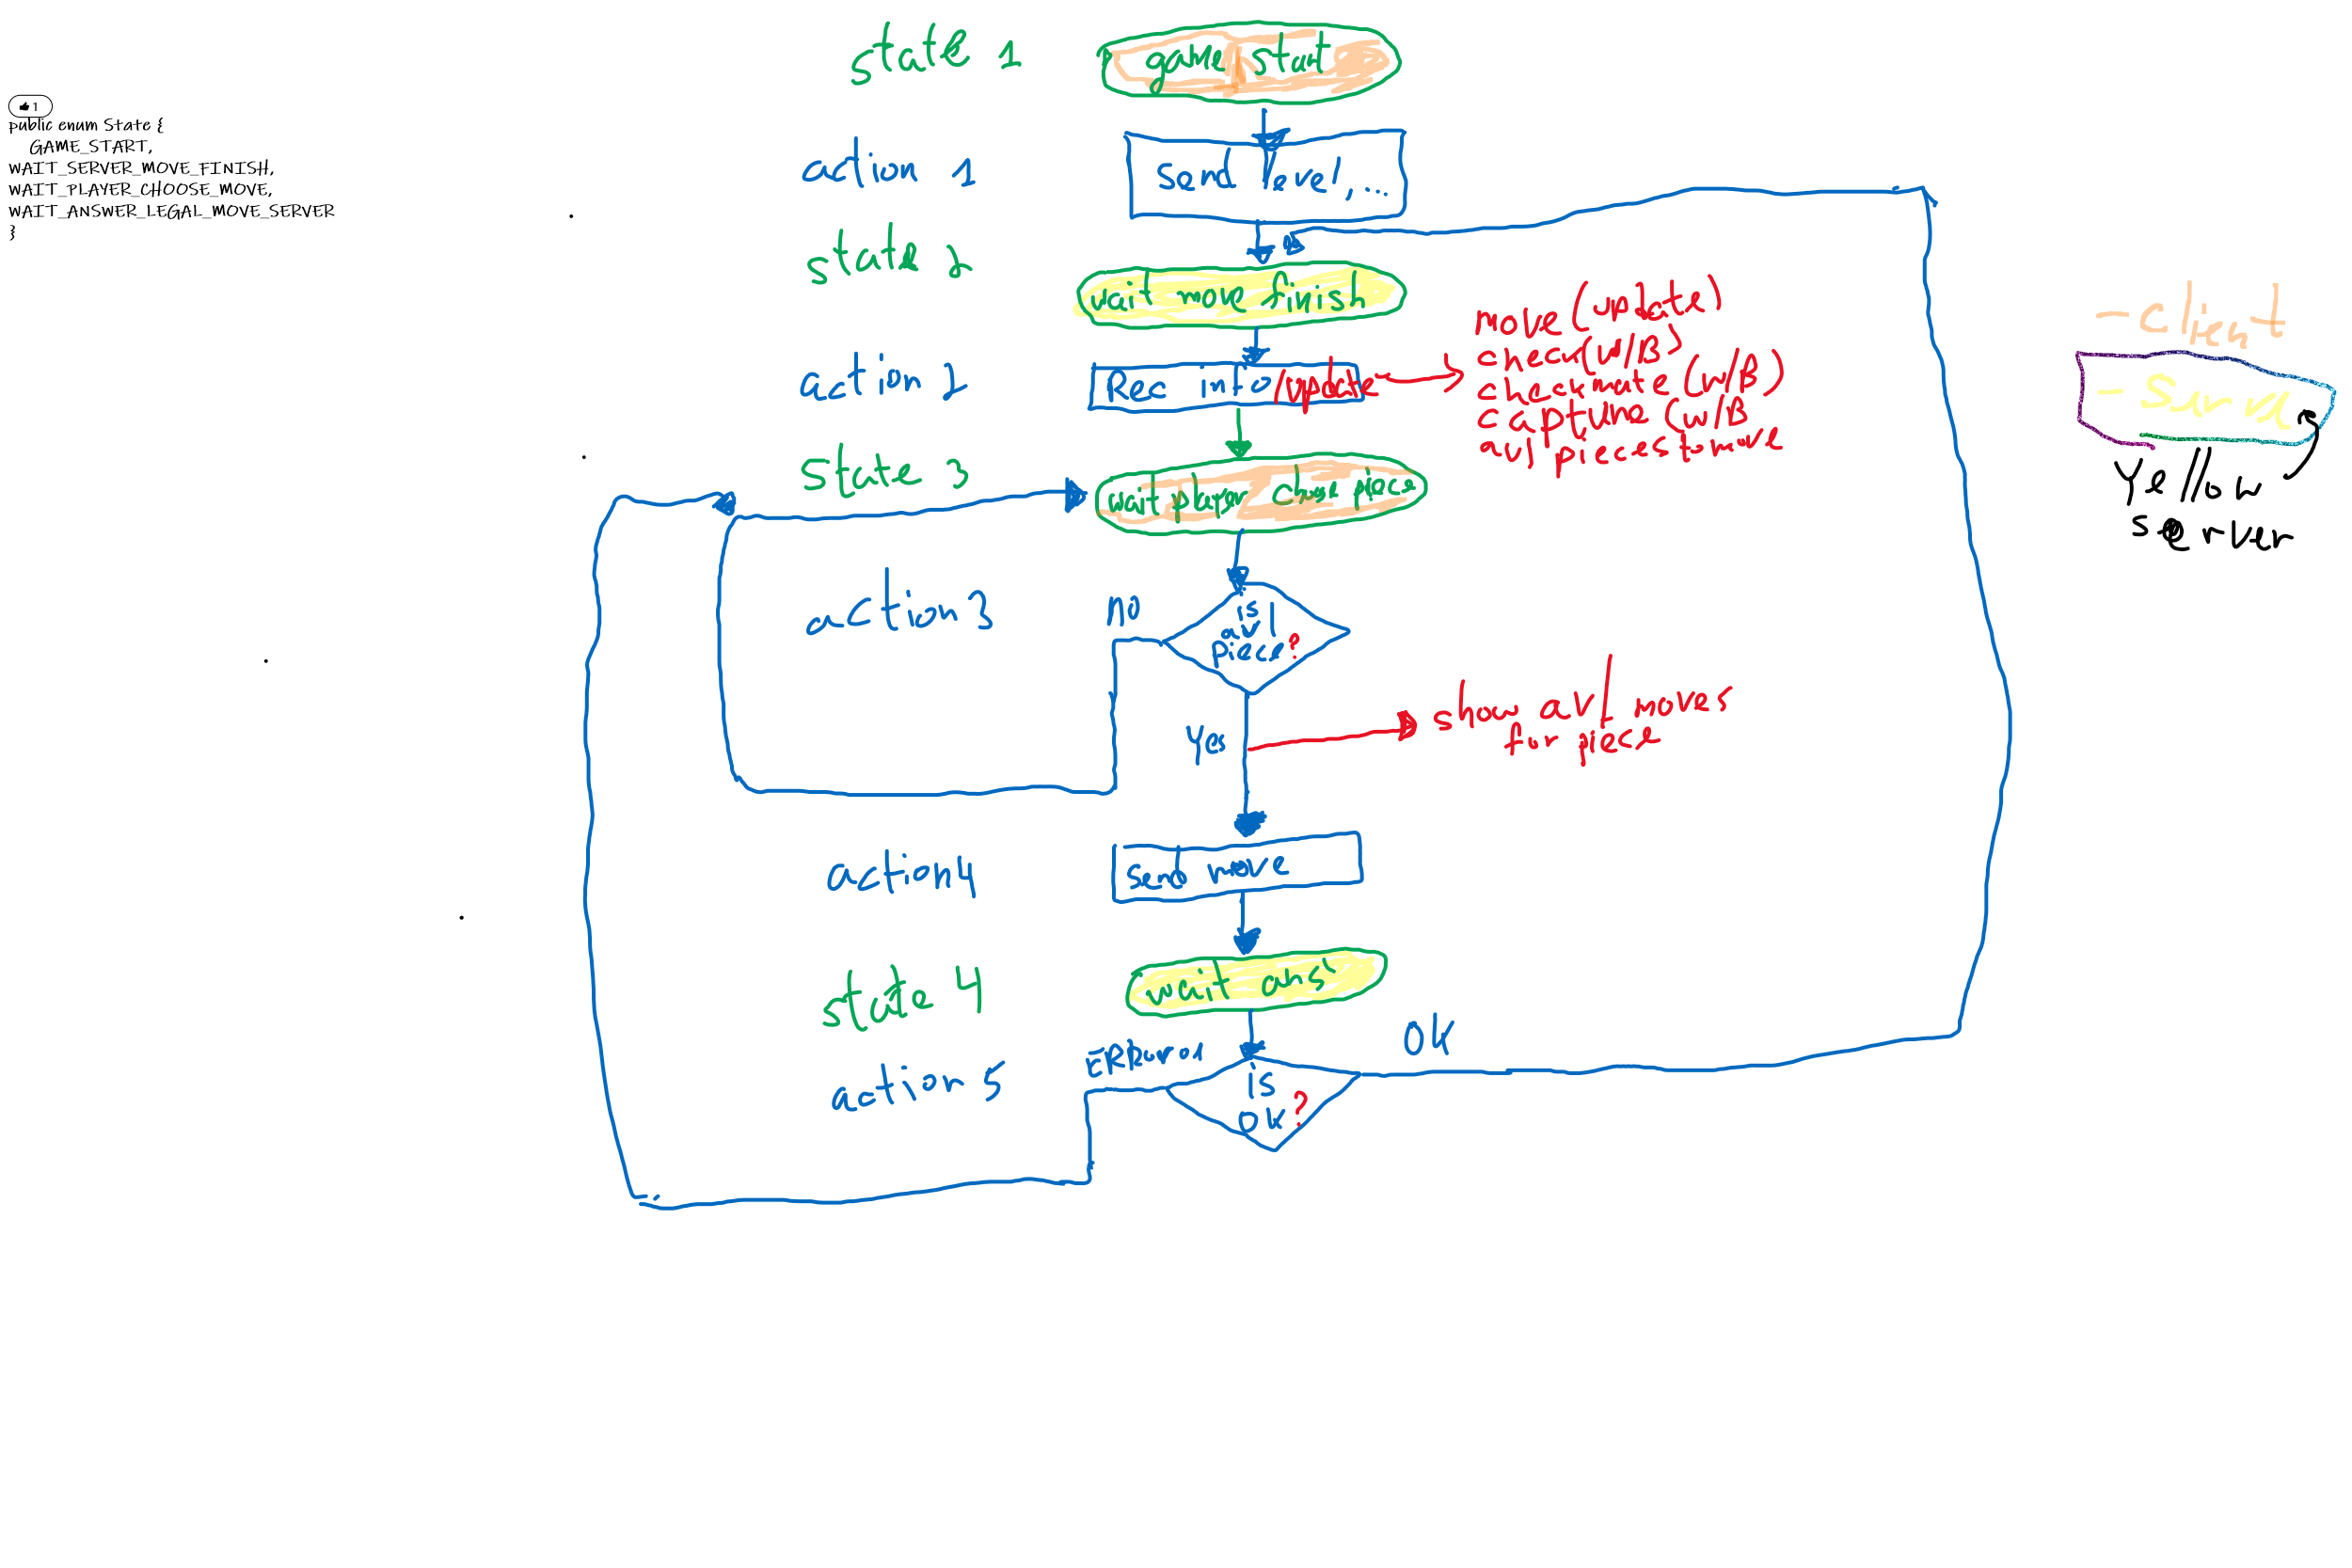 1
public enum State {
GAME_START,
WAIT_SERVER_MOVE_FINISH,
WAIT_PLAYER_CHOOSE_MOVE,
WAIT_ANSWER_LEGAL_MOVE_SERVER
}
state 1
game start
action 1
send level, ...
state 2
wait move finish
action 2
Rec info /update
move (update)
check (W/B)
checkmate (W/B)
capture (W/B
avl pieces to move
state 3
wait player chose piece
action 3
is
avl
piece?
no
yes
show avl moves
for piece
action 4
send move
state 4
wait ans
action 5
is
ok?
ok
- client
yellow
server